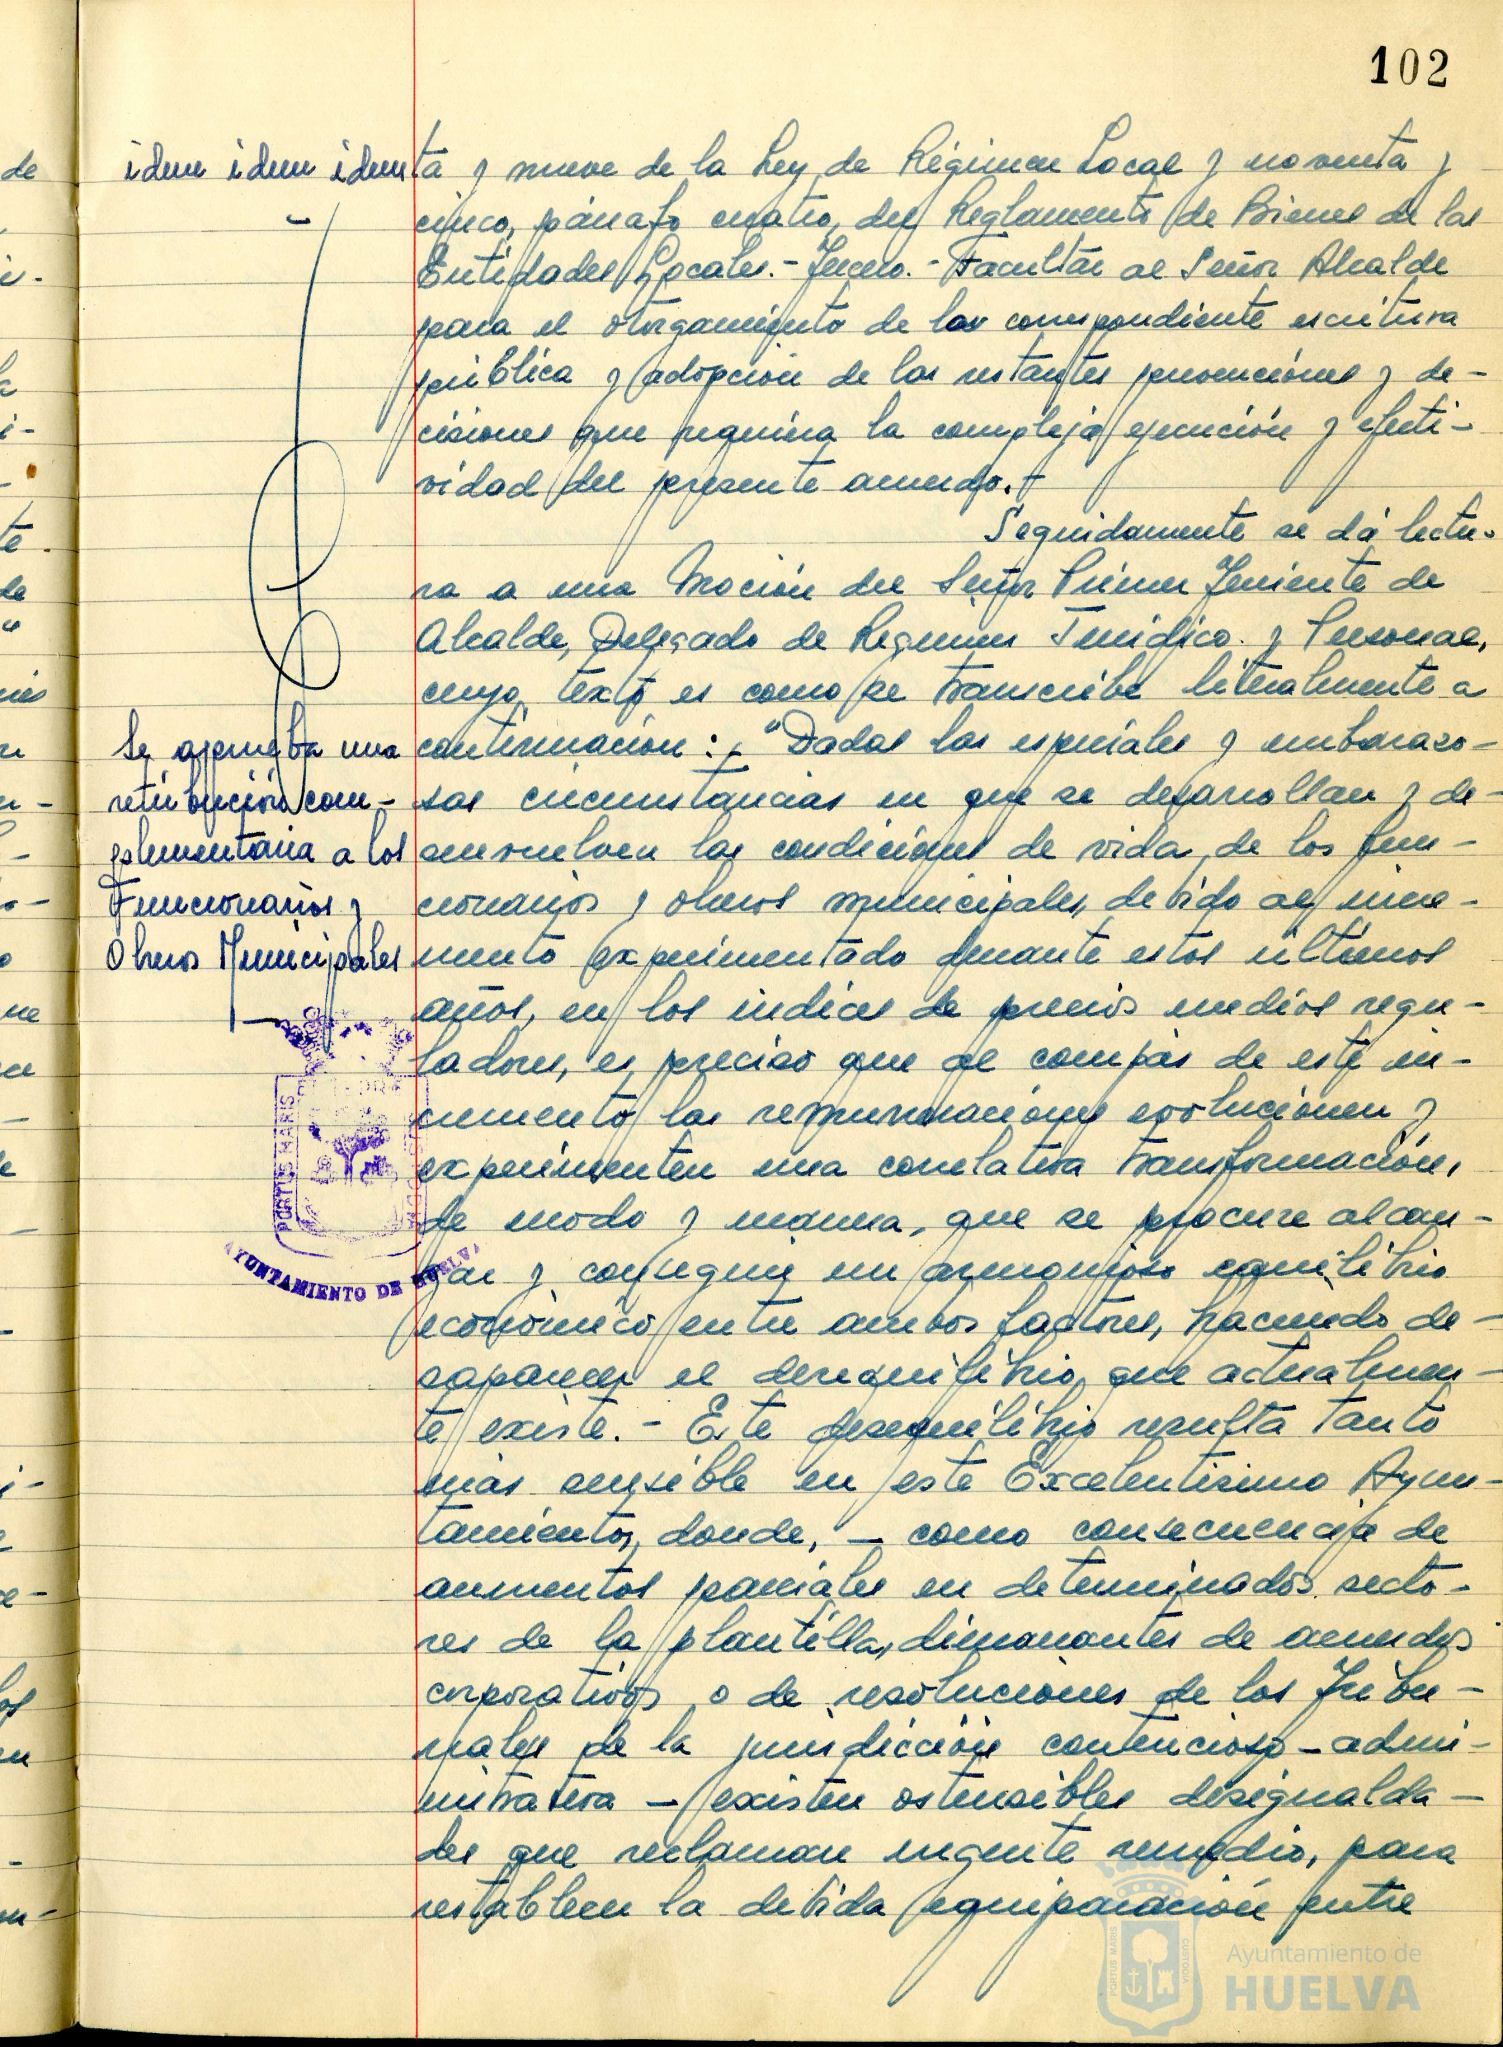 102
idem idem idem
ta y nueve de la Ley de Régimen Local y noventa y
cinco, párrafo cuatro, del Reglamento de Bienes de las
Entidades Locales.- Tercero.- Facultar al Señor Alcalde
para el otorgamiento de la correspondiente escritura
pública y adopción de las restantes prevenciones y de-
cisiones que requiera la compleja ejecución y efecti-
vidad del presente acuerdo.-
Seguidamente se dá lectu-
ra a una Moción del Señor Primer Teniente de
Alcalde, Delegado de Regimen Juridico y Personal,
cuyo texto es como se transcribe literalmente a
continuación: - "Dadas las especiales y embarazo-
sas circunstancias en que se desarrollan y de-
senvuelven las condiciones de vida de los fun-
cionarios y obreros municipales, debido al incre-
mento experimentado durante estos ultimos
años, en los indices de precios medios regu-
ladores, es preciso que al compás de este in-
cremento las remuneraciones evolucionen y
experimenten una correlativa transformación,
de modo y manera, que se procure alcan-
zar y conseguir un armonioso equilibrio
económico entre ambos factores, haciendo de-
saparecer el desequilibrio que actualmen-
te existe.- Este desequilibrio resulta tanto
más sensible en este Excelentisimo Ayun-
tamiento, donde, - como consecuencia de
aumentos parciales en determinados secto-
res de la plantilla, dimanantes de acuerdos
corporativos o de resoluciones de los Tribu-
nales de la jurisdicción contencioso-admi-
nistrativa - existen ostensibles desigualda-
des que reclaman urgente remedio, para
restablecer la debida equiparación entre
Se aprueba una
retribución com-
plementaria a los
Funcionarios y
Obreros Municipales
PORTUS MARIS
AYUNTAMIENTO DE HUELVA
PORTUS MARIS
CUSTODIA
Ayuntamiento de
HUELVA